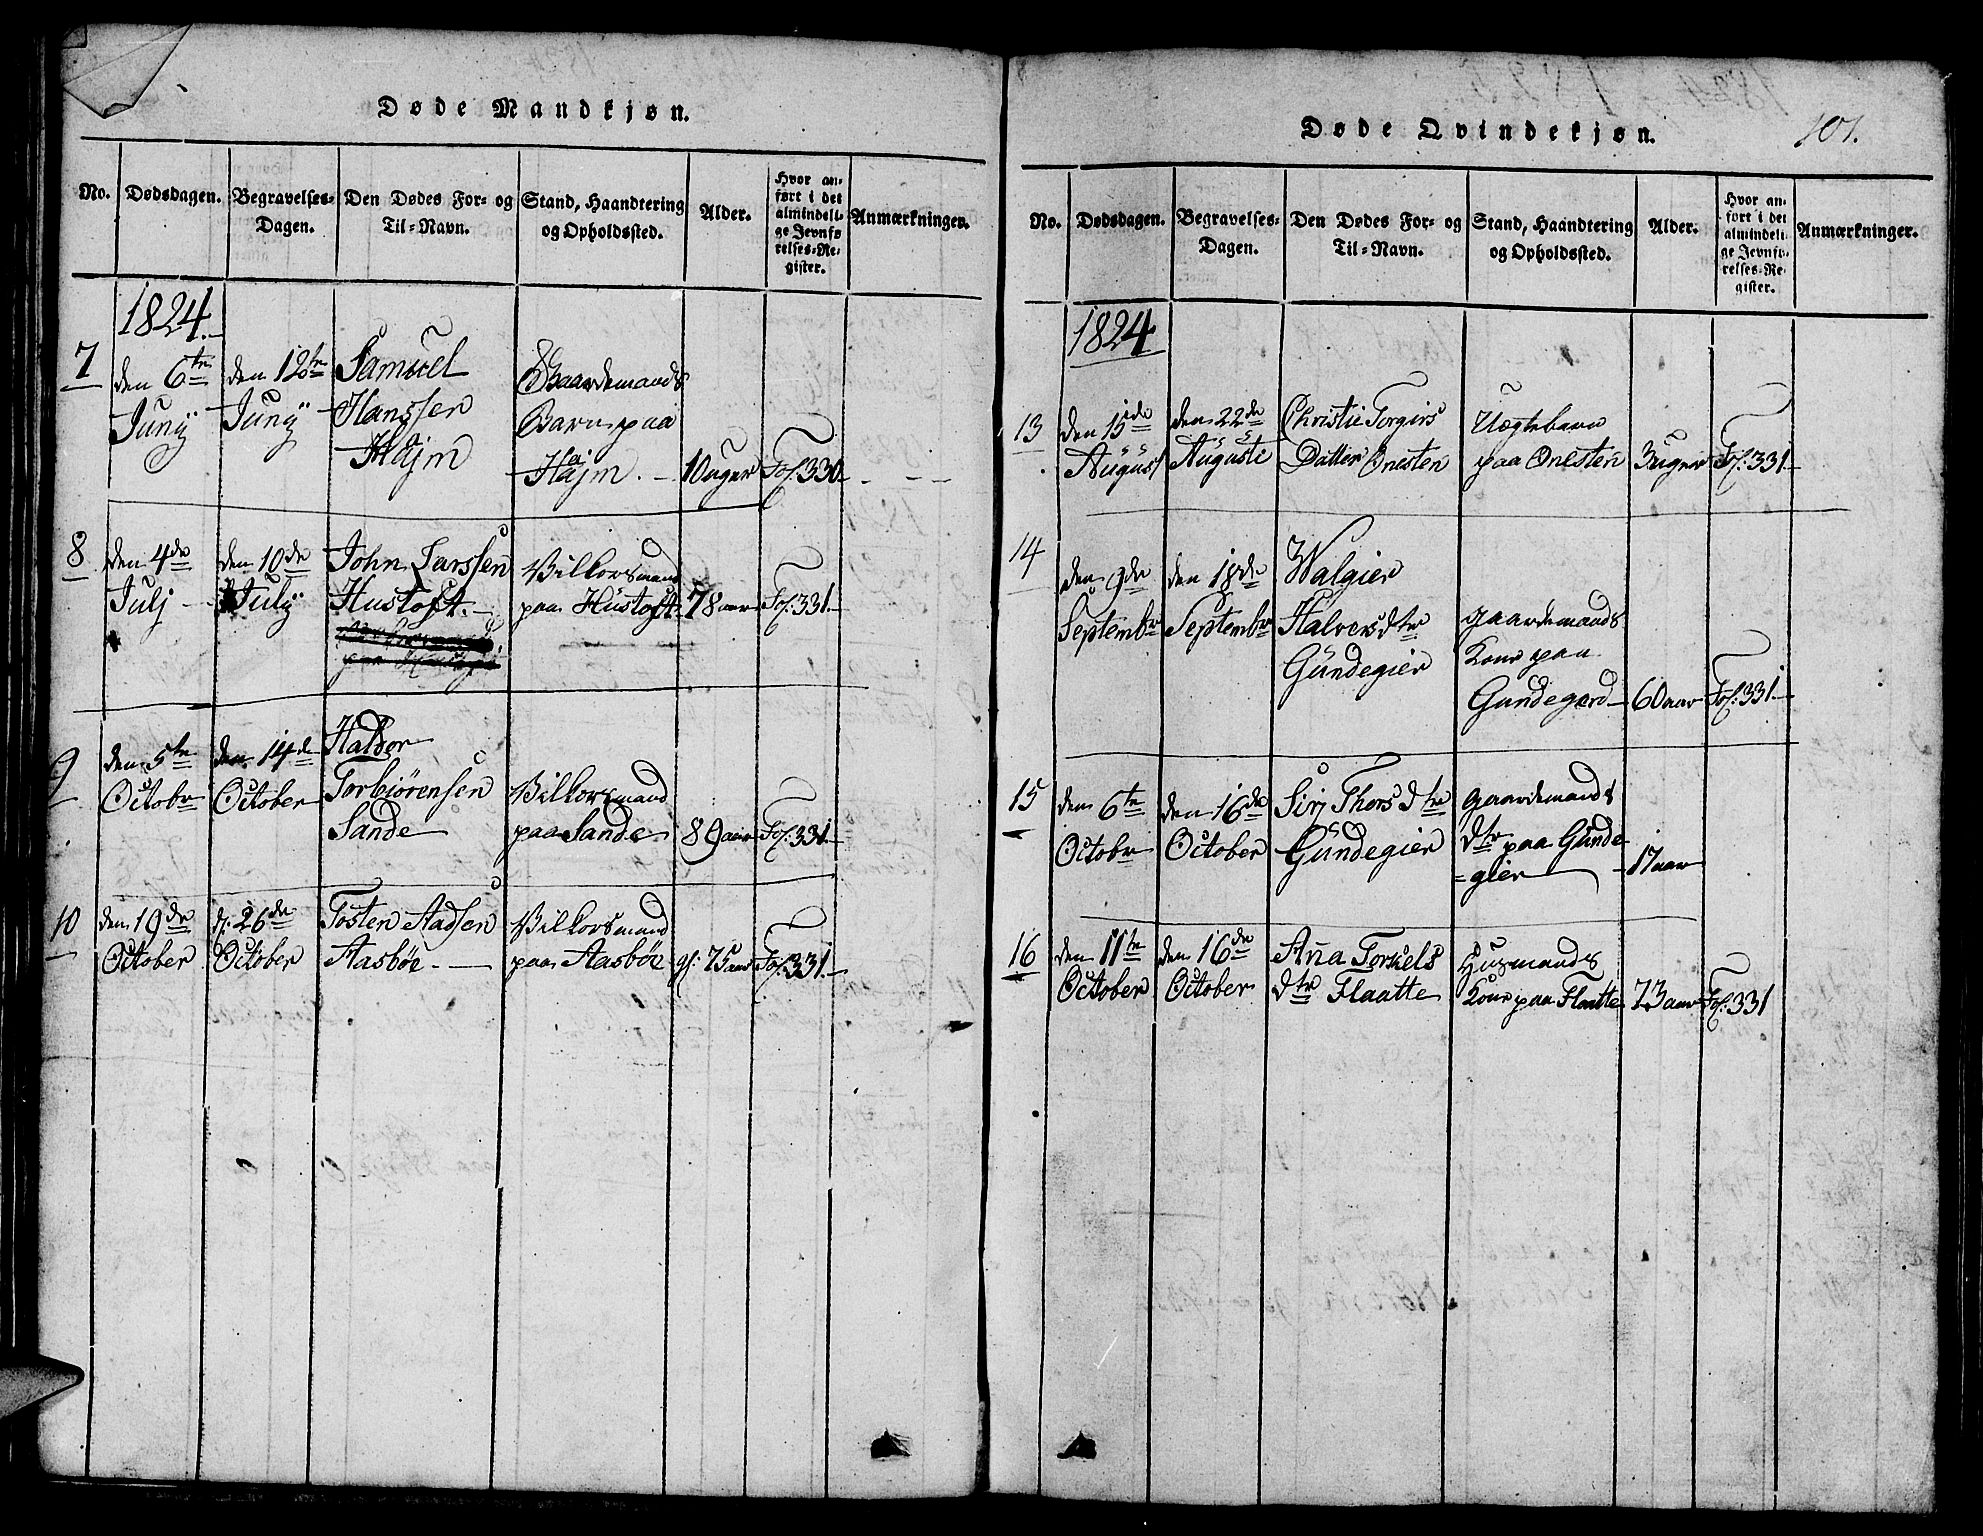 Døde Mandkjøn.
No. Dødsdagen. Begravelses-Dagen. Den Dødes For- og Til-Navn. Stand, Haandtering og Opholdssted. Alder. Hvor anført i det almindelige Jevnførelses-Register. Anmærkningen.
1824.
7 den 6te Junÿ den 12te Junÿ Samuel Hanssen Højm Gaardemands Barn paa Højm. 10 uger Fol. 330
8 den 4de Julj den 10de Julÿ John Larssen Hustoft. Vilkorsmand paa Hustoft. 78 aar Fol. 331.
9 den 5te Octobr den 14de October Halvor Torbiørensen Sande Vilkorsmand paa Sande 89 aar Fol. 331.
10 den 19de October d: 26de October Tosten Aadsen Aasbøe Vilkorsmand paa Aasbøe gl: 75 aar Fol. 331.
Døde Qvindekjøn.
101.
No. Dødsdagen. Begravelses-Dagen. Den Dødes For- og Til-Navn. Stand, Haandtering og Opholdssted. Alder. Hvor anført i det almindelige Jevnførelses-Register. Anmærkninger.
1824
13 den 15de August den 22de Auguste Christie Torgirs Datter Onesten Uægtebarn paa Onesten 3 uger Fol. 331
14 den 9de Septembr den 18de Septembr Walgier Halvers dtr Gundegier gaardemands Kone paa Gundegard 60 aar Fol. 331
15 den 6te Octobr den 16de October Sirj Thors dtr Gundegier gaardemands dtr paa Gundegier 17 aar
16 den 11te October den 16de October Ana Torkels dtr Flaatte Husmands Kone paa Flaatte 73 aar Fol. 331